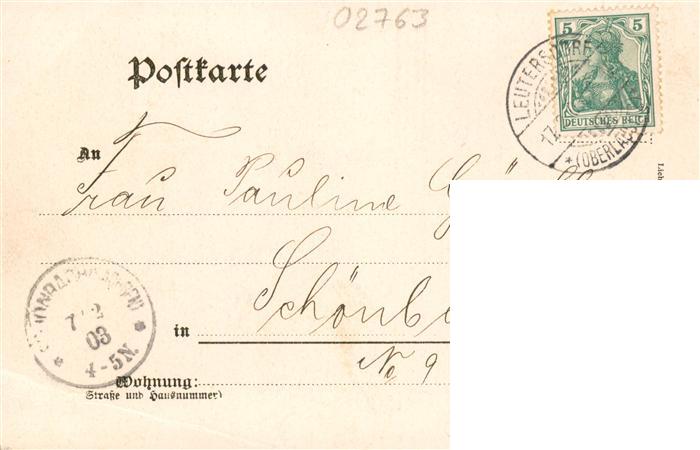 02763
Postkarte
5 5
DEUTSCHES REICH
LEUTERSDORF
* (OBERLAUS
17
An
Frau Pauline
Schönb
in
No 9
Wohnung:
Straße und Hausnummer)
03
4-5N.